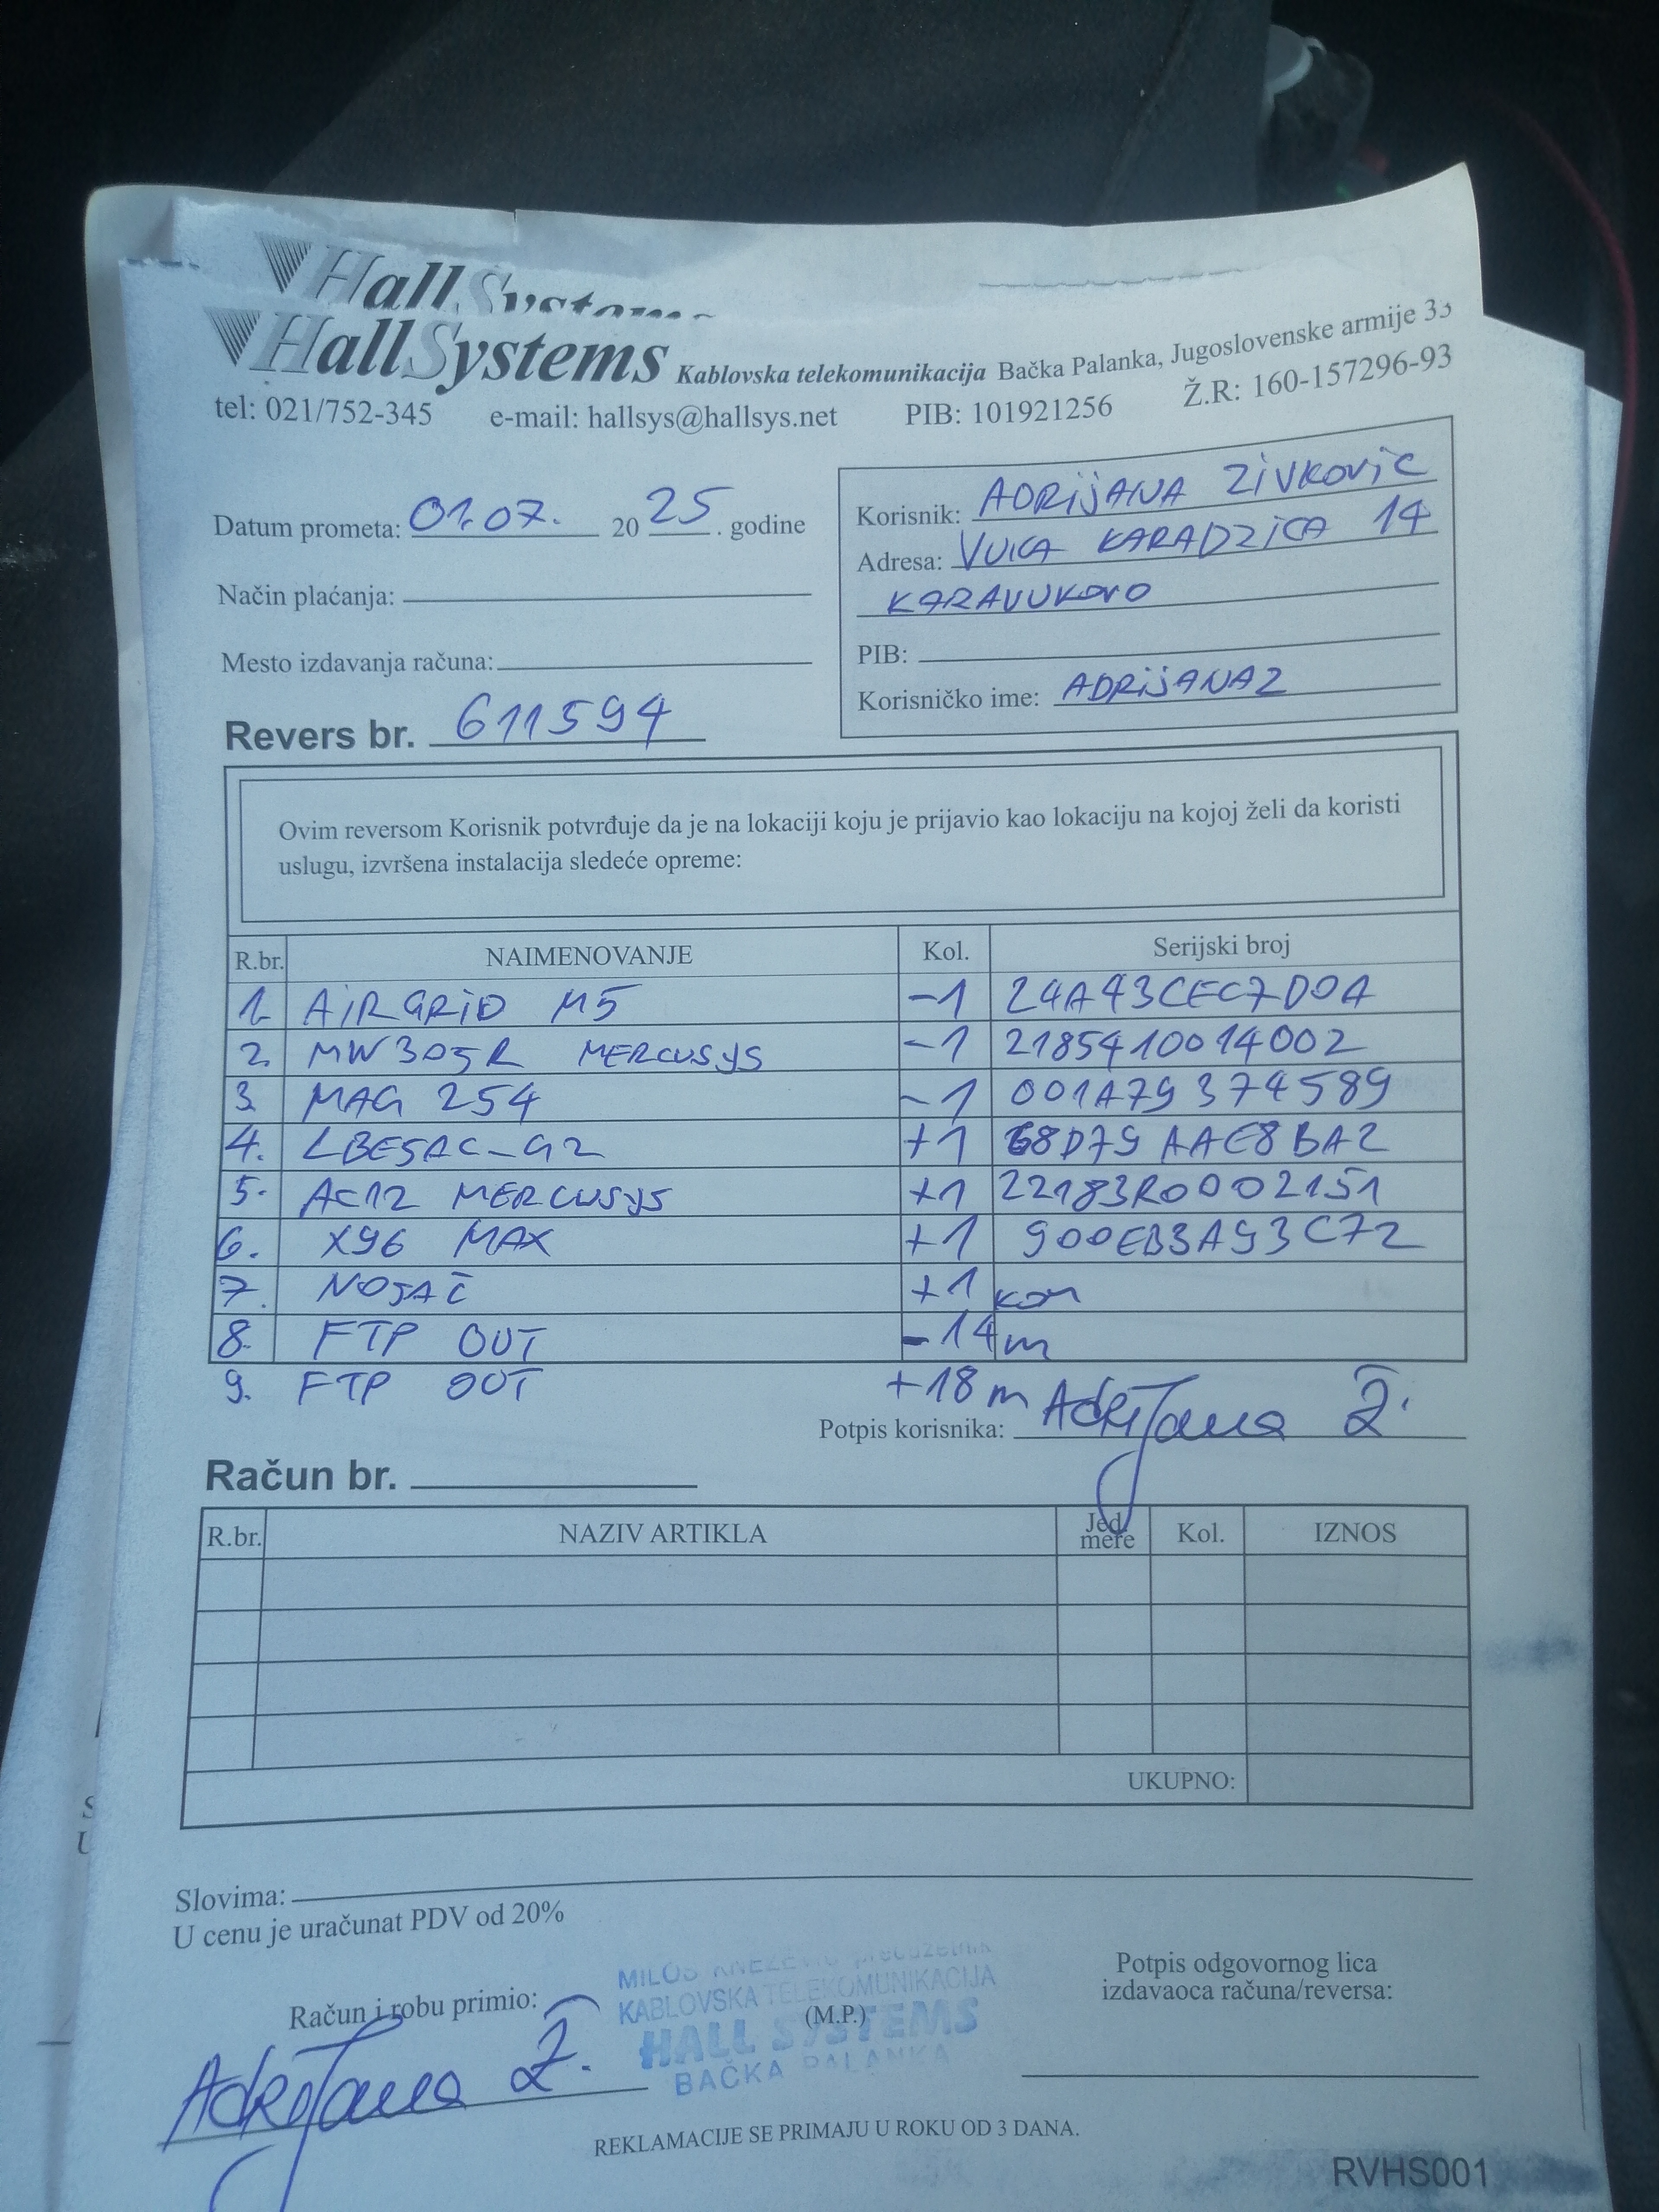 HallSystems
HallSystems Kablovska telekomunikacija Bačka Palanka, Jugoslovenske armije 33
tel: 021/752-345 e-mail: hallsys@hallsys.net PIB: 101921256 Ž.R: 160-157296-93
Datum prometa: 01.07. 2025. godine
Način plaćanja:
Mesto izdavanja računa:
Revers br. 611594
Korisnik: ADRIJANA ZIVKOVIC
Adresa: VUKA KARADZICA 14
KARAVUKOVO
PIB:
Korisničko ime: ADRIJANAZ
Ovim reversom Korisnik potvrđuje da je na lokaciji koju je prijavio kao lokaciju na kojoj želi da koristi
uslugu, izvršena instalacija sledeće opreme:
R.br. NAIMENOVANJE Kol. Serijski broj
1. AIRGRID M5 -1 24A43CEC7D0A
2. MW305R MERCUSYS -1 2185410014002
3. MAG 254 -1 001A79374589
4. LBE5AC-G2 +1 68D79AAE8BA2
5. AC12 MERCUSYS +1 22183R0002151
6. X96 MAX +1 900EB3A93C72
7. NOSAČ +1 kom
8. FTP OUT -14m
9. FTP OUT +18m
Potpis korisnika: Adrijana Ž.
Račun br.
R.br. NAZIV ARTIKLA Jed. mere Kol. IZNOS
UKUPNO:
Slovima:
U cenu je uračunat PDV od 20%
Račun i robu primio:
Adrijana Ž.
MILOŠ KNEŽEVIĆ preduzetnik
KABLOVSKA TELEKOMUNIKACIJA
(M.P.)
HALL SYSTEMS
BAČKA PALANKA
Potpis odgovornog lica
izdavaoca računa/reversa:
REKLAMACIJE SE PRIMAJU U ROKU OD 3 DANA.
RVHS001